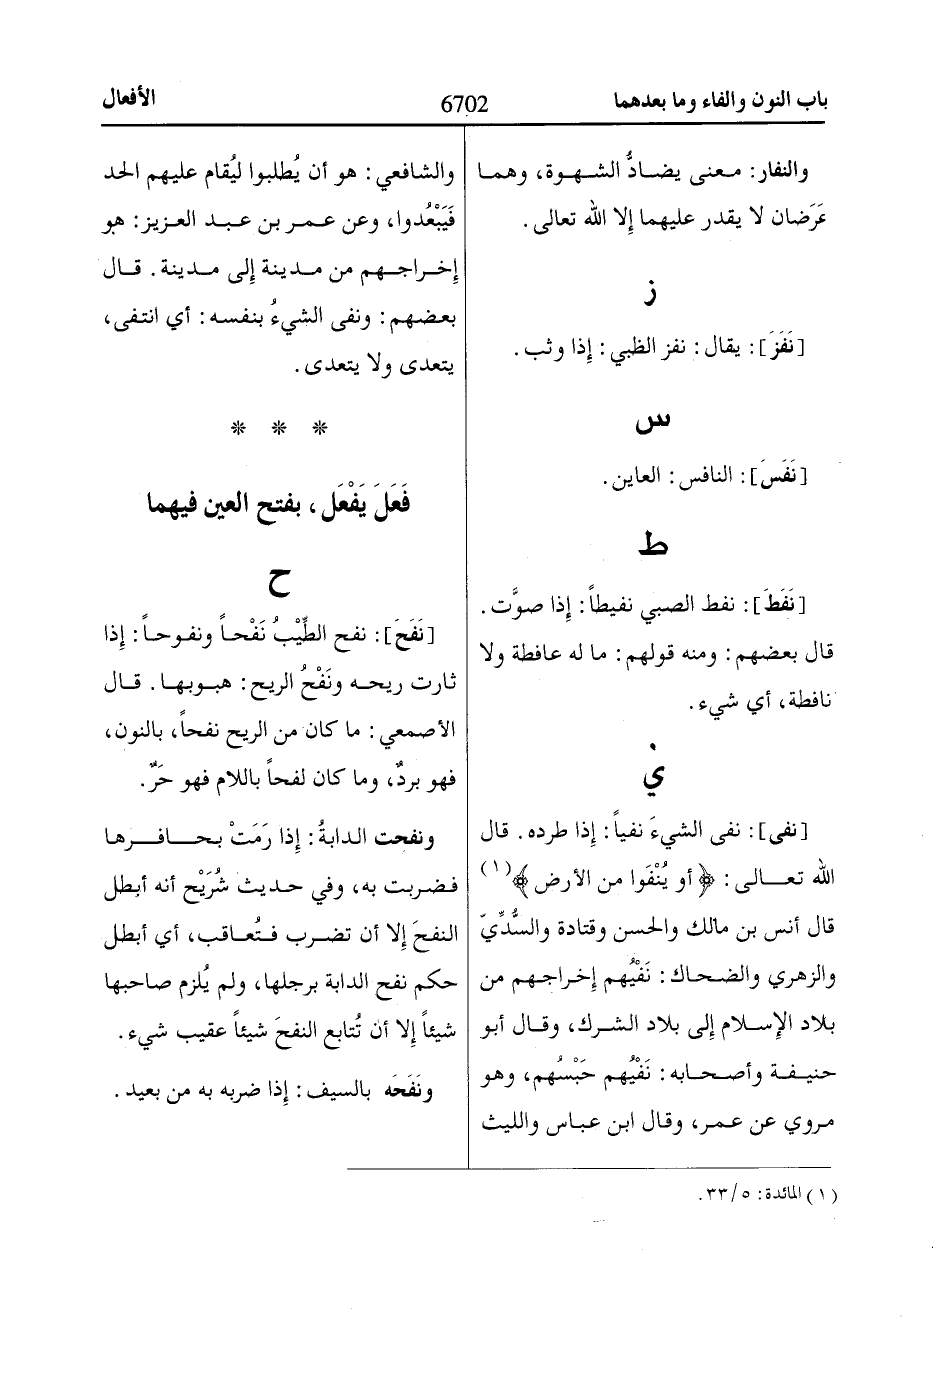 باب النون والفاء وما بعدهما
6702
الأفعال
والنفار: معنى يضادُّ الشهوة، وهما
عَرَضان لا يقدر عليهما إلا الله تعالى.
ز
[نَفَزَ]: يقال: نفز الظبي: إذا وثب.
س
[نَفَسَ]: النافس: العاين.
ط
[نَفَطَ]: نفط الصبي نفيطاً: إذا صوَّت.
قال بعضهم: ومنه قولهم: ما له عافطة ولا
نافطة، أي شيء.
ي
[نفى]: نفى الشيءَ نفياً: إذا طرده. قال
الله تعالى: ﴿أو يُنْفَوا من الأرض﴾(١)
قال أنس بن مالك والحسن وقتادة والسُّدِّيّ
والزهري والضحاك: نَفْيُهم إخراجهم من
بلاد الإسلام إلى بلاد الشرك، وقال أبو
حنيفة وأصحابه: نَفْيُهم حَبْسُهم، وهو
مروي عن عمر، وقال ابن عباس والليث
والشافعي: هو أن يُطلبوا ليُقام عليهم الحد
فَيَبْعُدوا، وعن عمر بن عبد العزيز: هو
إخراجهم من مدينة إلى مدينة. قال
بعضهم: ونفى الشيءُ بنفسه: أي انتفى،
يتعدى ولا يتعدى.
* * *
فَعَلَ يَفْعَل، بفتح العين فيهما
ح
[نَفَحَ]: نفح الطِّيْبُ نَفْحاً ونفوحاً: إذا
ثارت ريحه ونَفْحُ الريح: هبوبها. قال
الأصمعي: ما كان من الريح نفحاً، بالنون،
فهو بردٌ، وما كان لفحاً باللام فهو حَرٌّ.
ونفحت الدابةُ: إذا رَمَتْ بحافرها
فضربت به، وفي حديث شُرَيْح أنه أبطل
النفحَ إلا أن تضرب فتُعاقب، أي أبطل
حكم نفح الدابة برجلها، ولم يُلزم صاحبها
شيئاً إلا أن تُتابع النفحَ شيئاً عقيب شيء.
ونَفَحَه بالسيف: إذا ضربه به من بعيد.
(١) المائدة: ٥/ ٣٣.